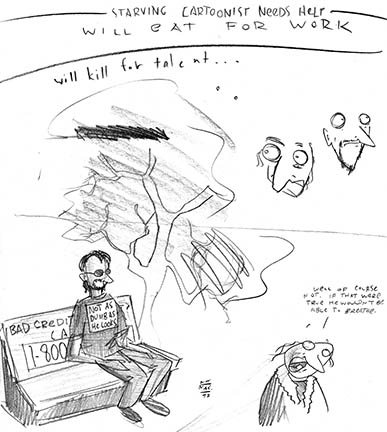 STARVING CARTOONIST NEEDS HELP
WILL EAT FOR WORK
will kill for talent...
NOT AS
DUMB AS
HE LOOKS
BAD CREDIT
CA
1-800
WELL OF COURSE
NOT. IF THAT WERE
TRUE HE WOULDN'T BE
ABLE TO BREATHE.